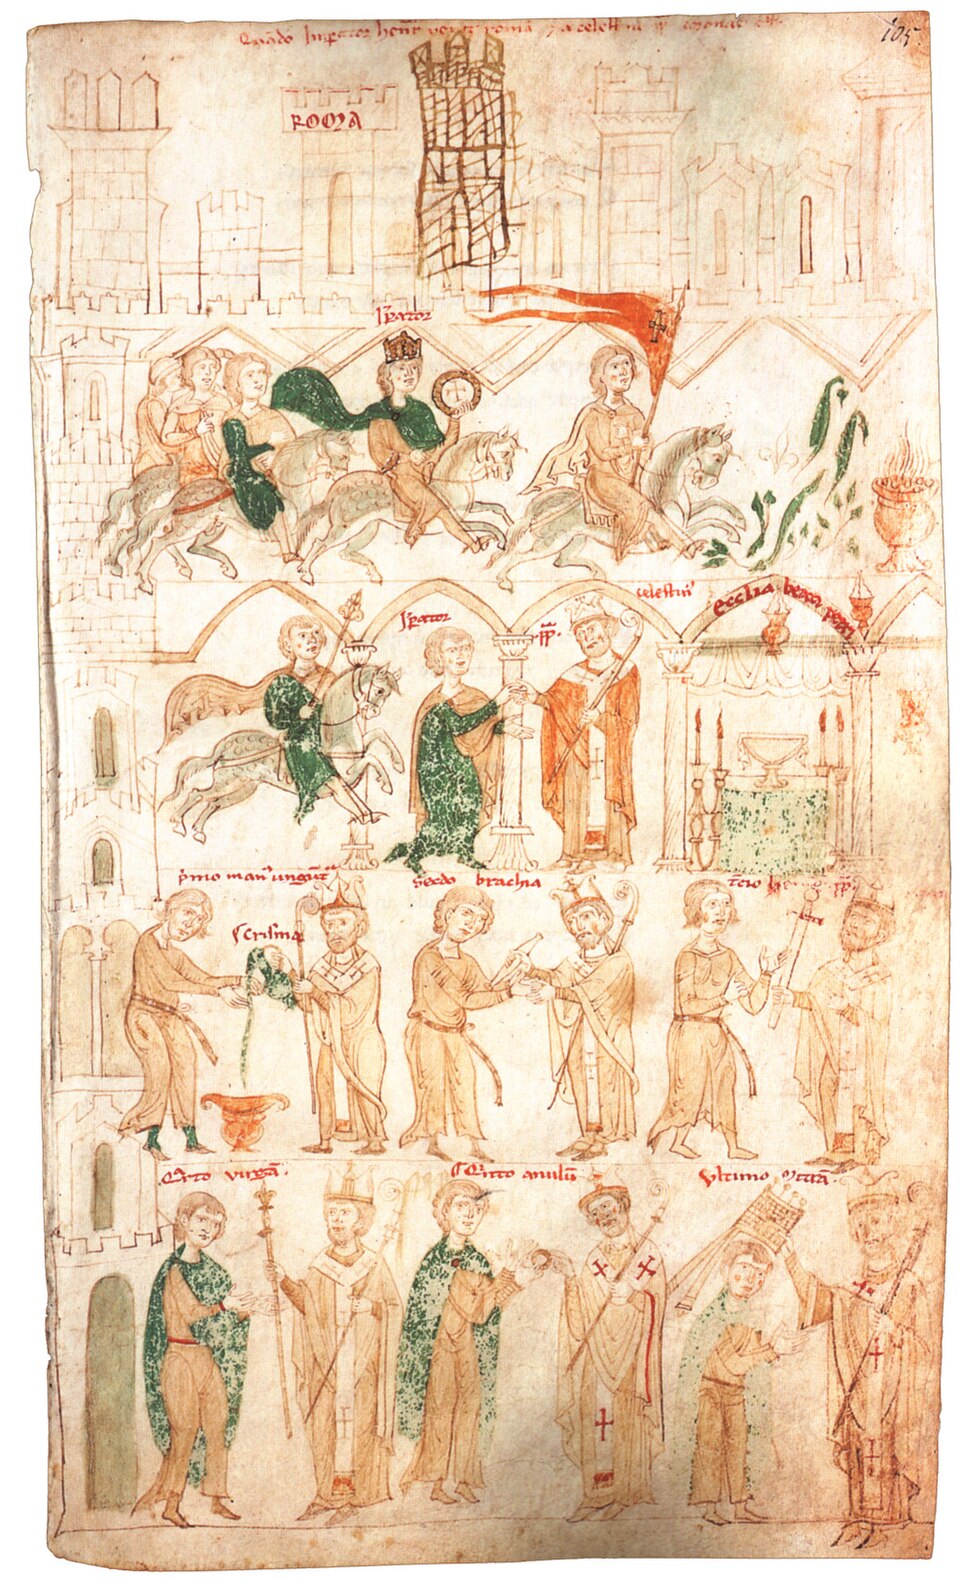 Quando Imperator henr' venit romā 7 a celestin' pp' coronat' est.
105
ROMA
Īperator
celestin'
Īperator
pp.
ecclia beati petri
p'mo man' ungūt'
Secdo brachia
t'cio
pp.
Crisma
Q'rto virgā.
Q'nto anulū
Ultimo mitrā.